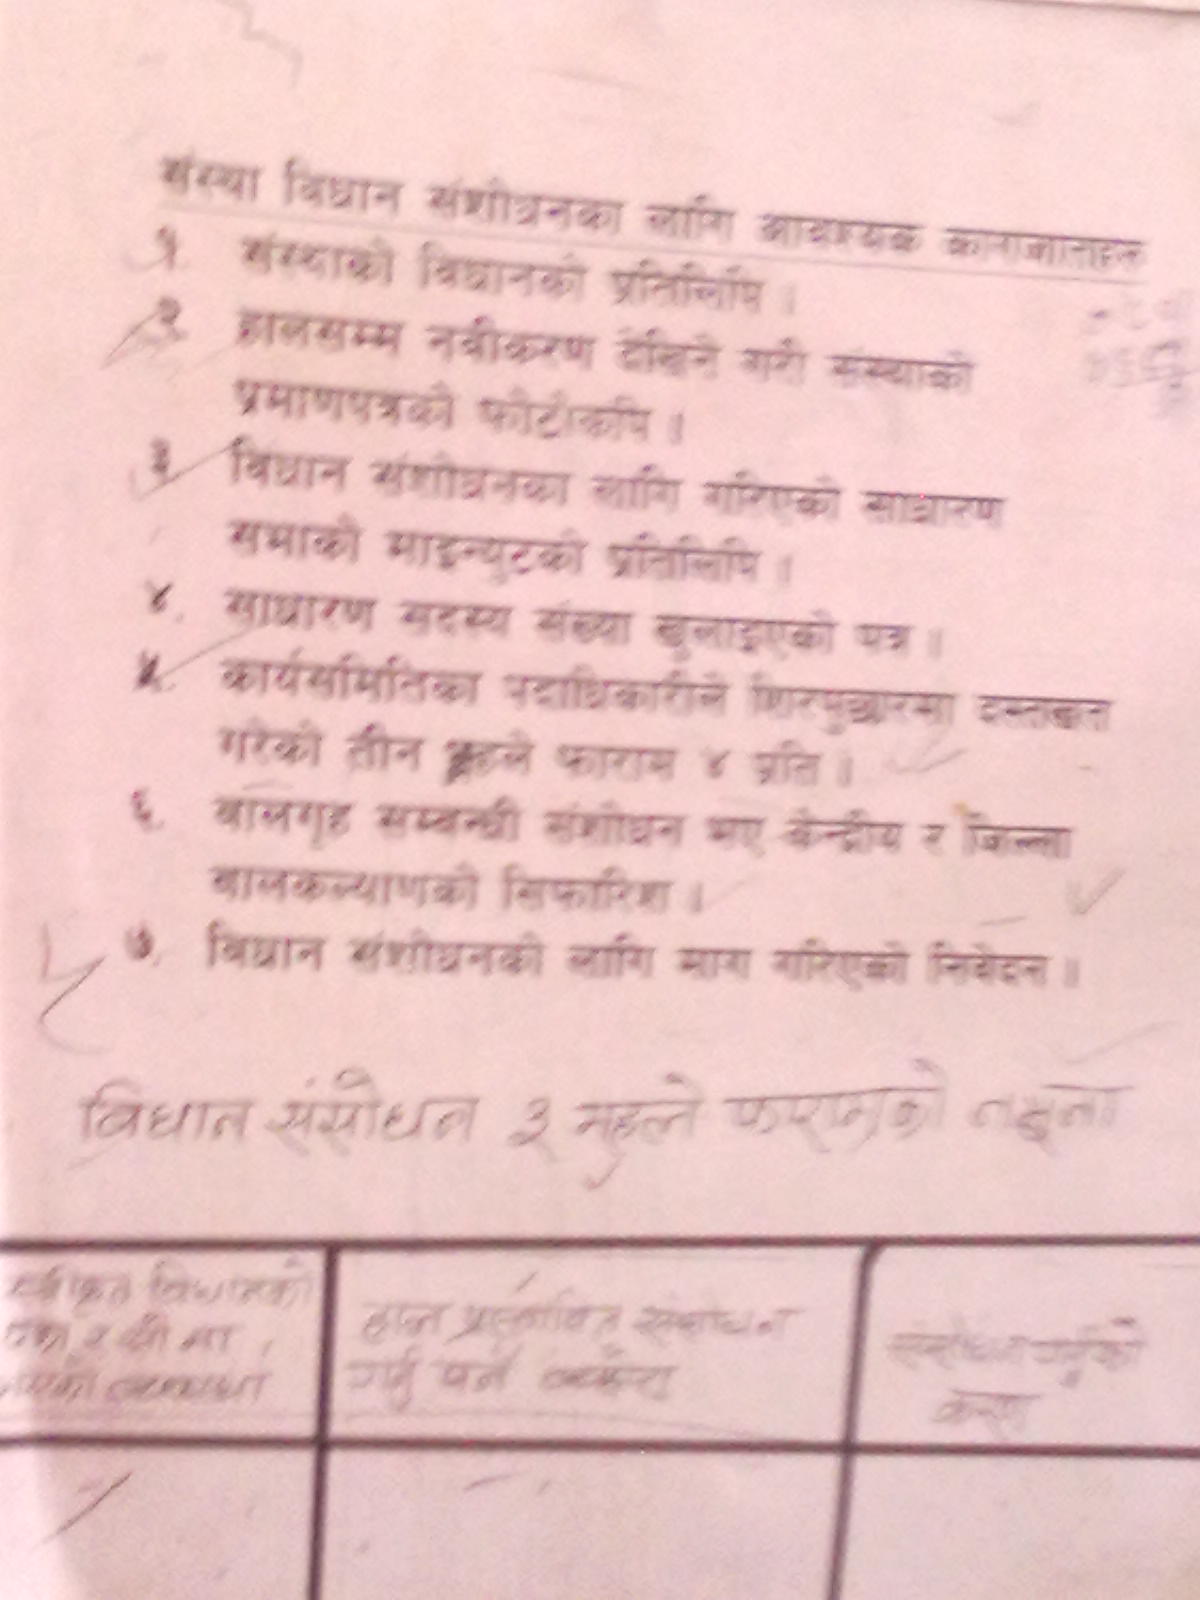 संस्था विधान संशोधनका लागि आवश्यक कागजातहरु
१. संस्थाको विधानको प्रतिलिपि ।
२. हालसम्म नवीकरण देखिने गरी संस्थाको
प्रमाणपत्रको फोटोकपि ।
३. विधान संशोधनका लागि गरिएको साधारण
सभाको माइन्युटको प्रतिलिपि ।
४. साधारण सदस्य संख्या खुलाइएको पत्र ।
५. कार्यसमितिका पदाधिकारीले शिरपुछारमा दस्तखत
गरेको तीन महले फाराम ४ प्रति ।
६. बालगृह सम्बन्धी संशोधन भए केन्द्रीय र जिल्ला
बालकल्याणको सिफारिश ।
७. विधान संशोधनको लागि माग गरिएको निवेदन ।
विधान संसोधन ३ महले फारामको
विधानको
हाल प्रस्तावित संसोधन
गर्नु पर्ने
संसोधन गर्नुको
कारण